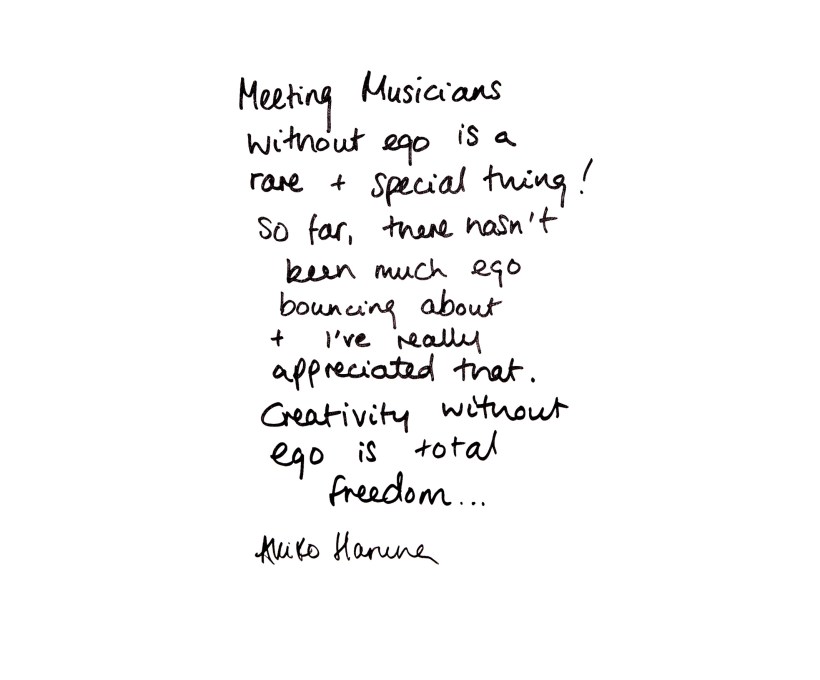 Meeting Musicians
without ego is a
rare + special thing!
So far, there hasn't
been much ego
bouncing about
+ I've really
appreciated that.
Creativity without
ego is total
freedom...
Akiko Haruna